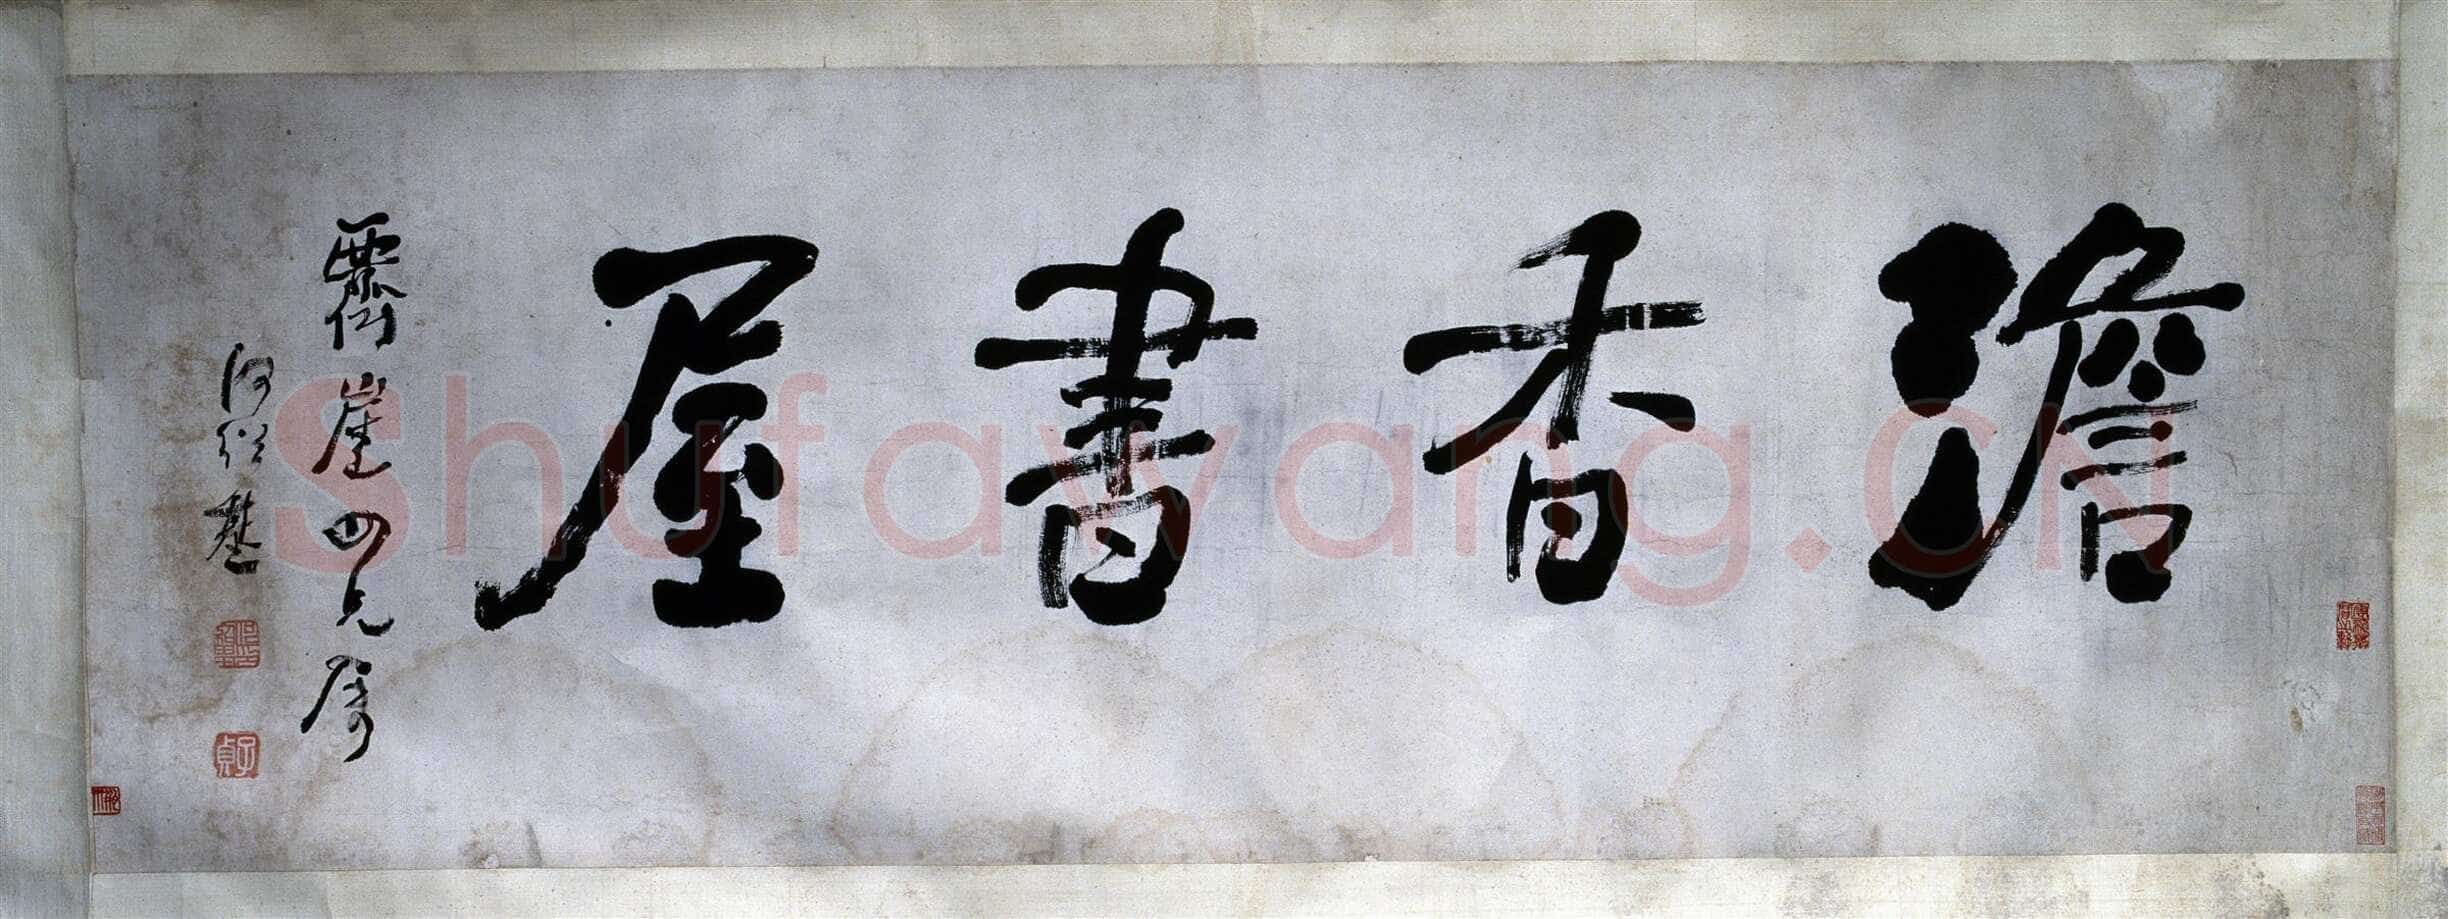 澹香書屋
霽崖四兄屬
何紹基
子貞
shufawang.CN